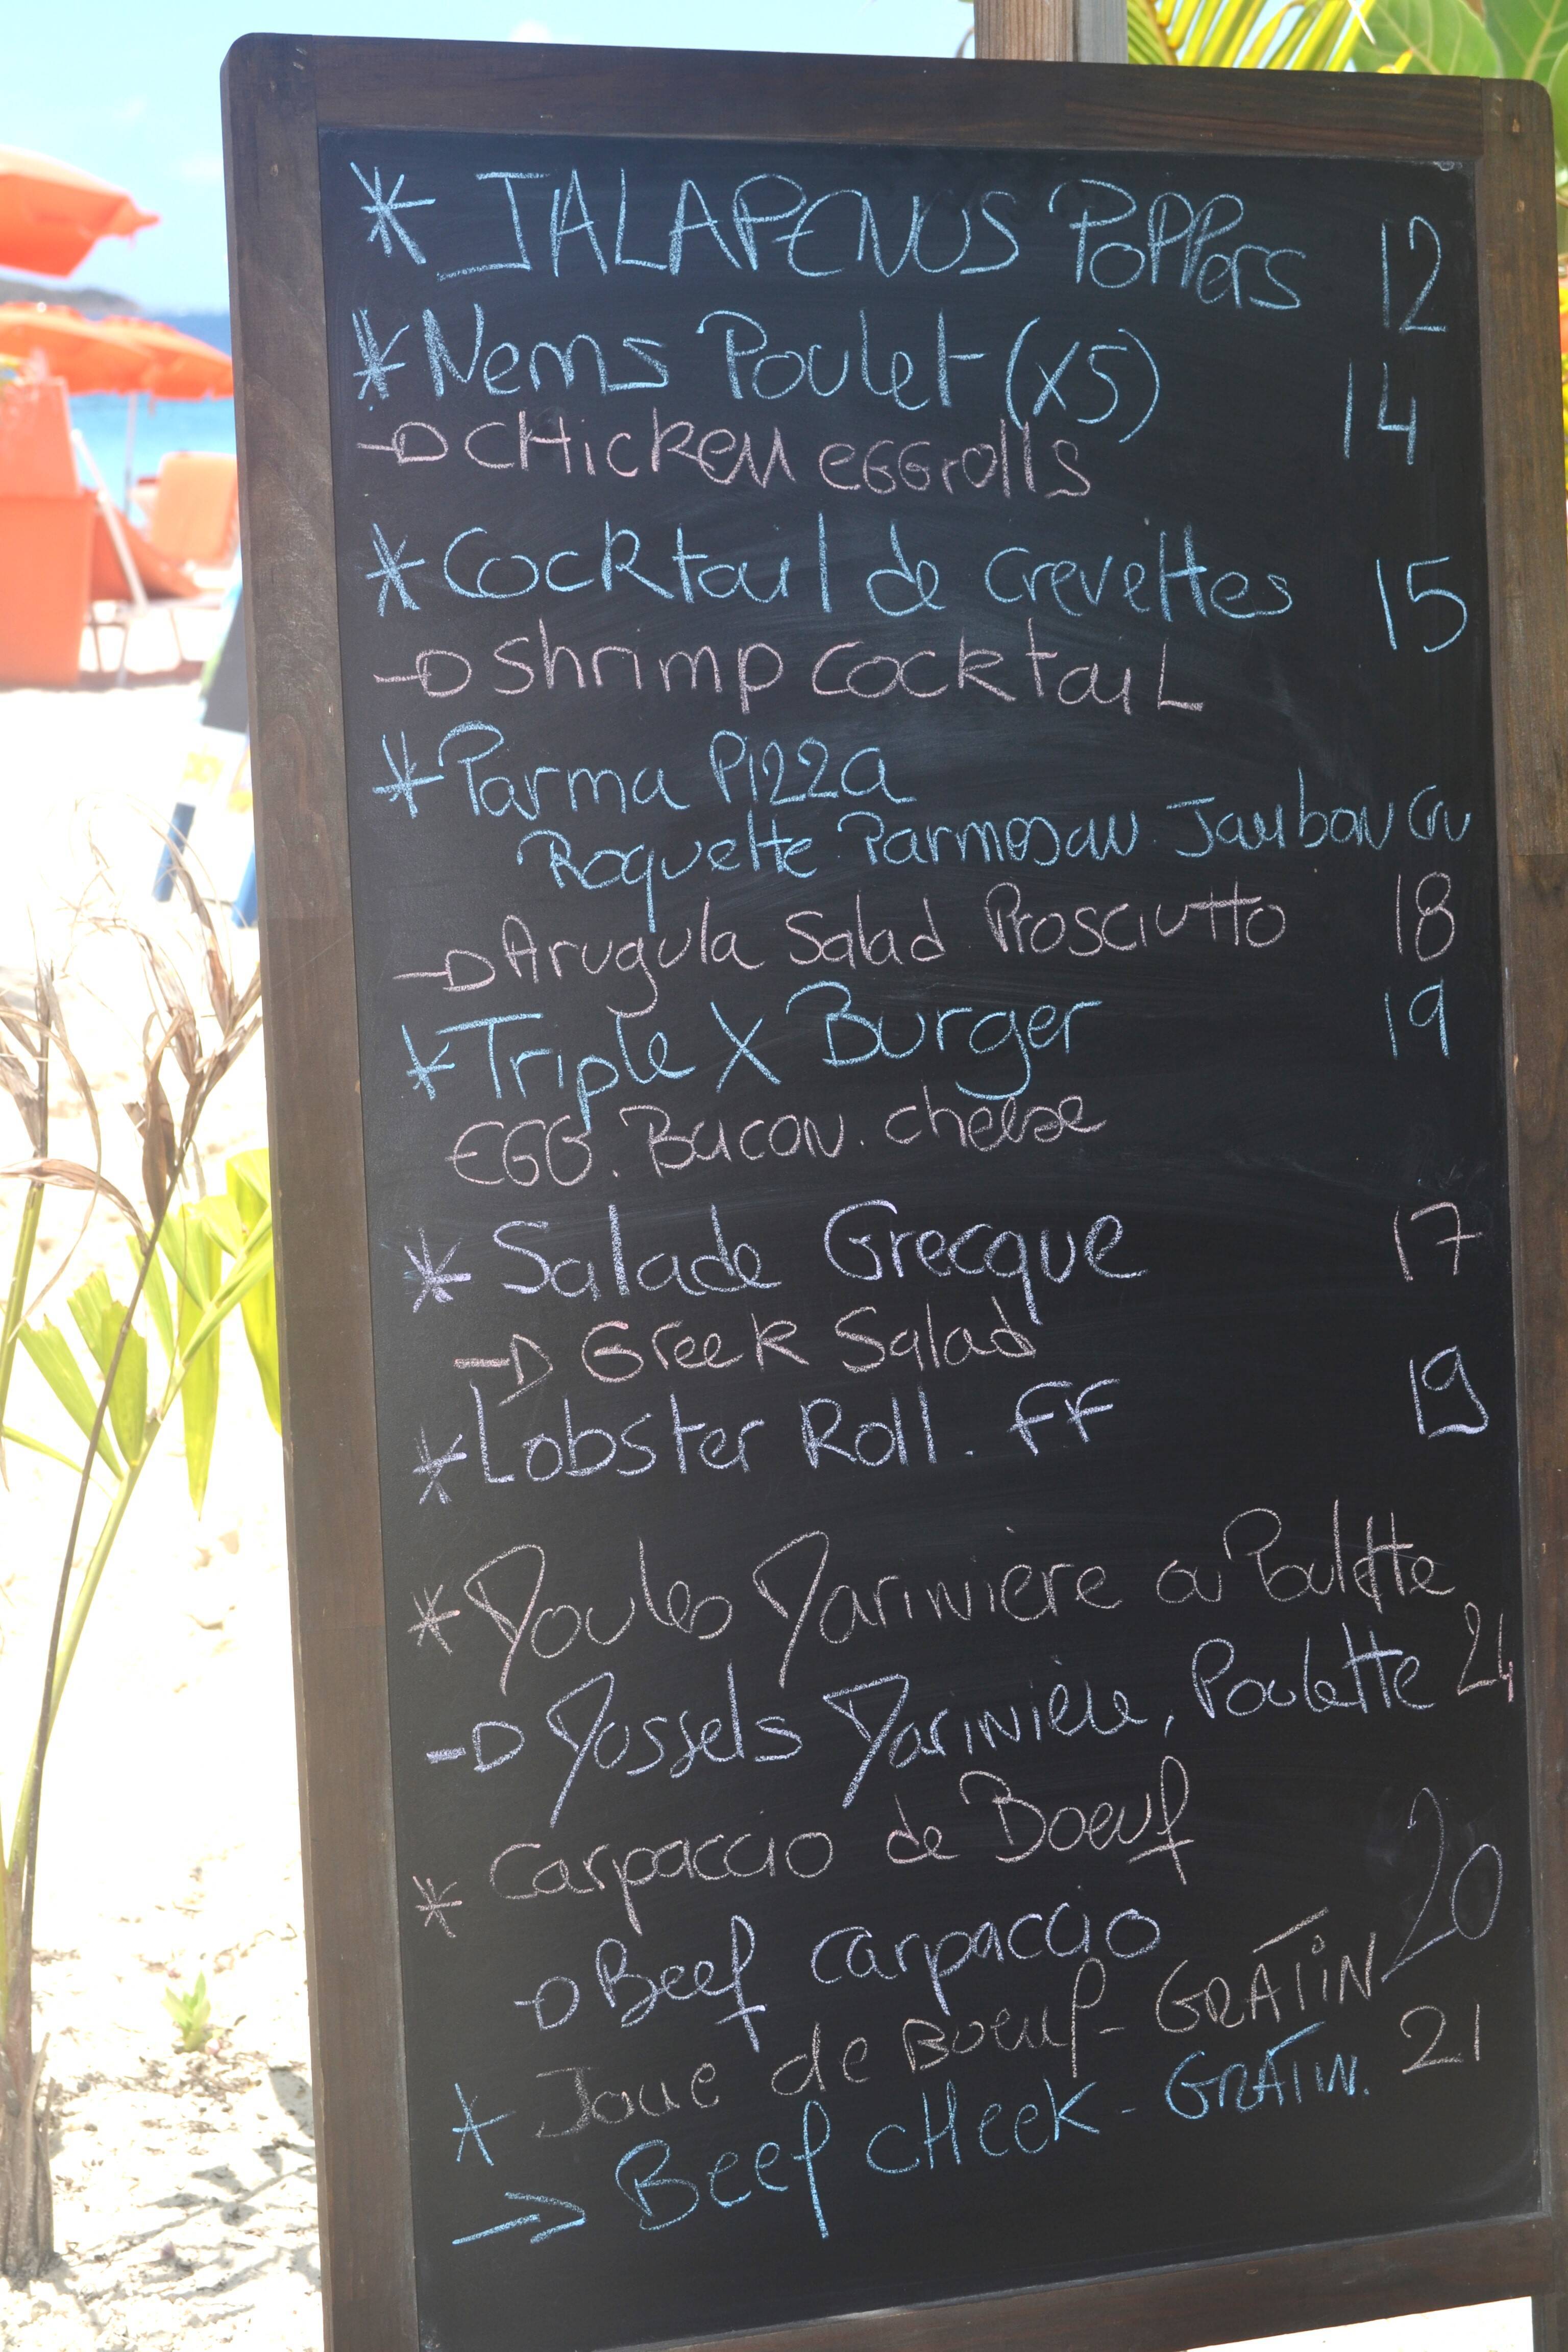 * JALAPENOS POPPers 12
* Nems Poulet (x5) 14
→ CHicken eGGrolls
* Cocktail de crevettes 15
→ shrimp cocktaiL
* Parma Pizza
Roquette. Parmesan. Jambon Cru
→ Arugula Salad Prosciutto 18
* Triple X Burger 19
EGG. Bacon. cheese
* Salade Grecque 17
→ Greek Salad
* Lobster Roll. FF 19
* Moules Marinière ou Poulette
→ Mossels Marinière, Poulette 24
* Carpaccio de Boeuf 20
→ Beef carpaccio
* Joue de Boeuf - GRATiN 21
→ Beef cHeek - GRATiN.